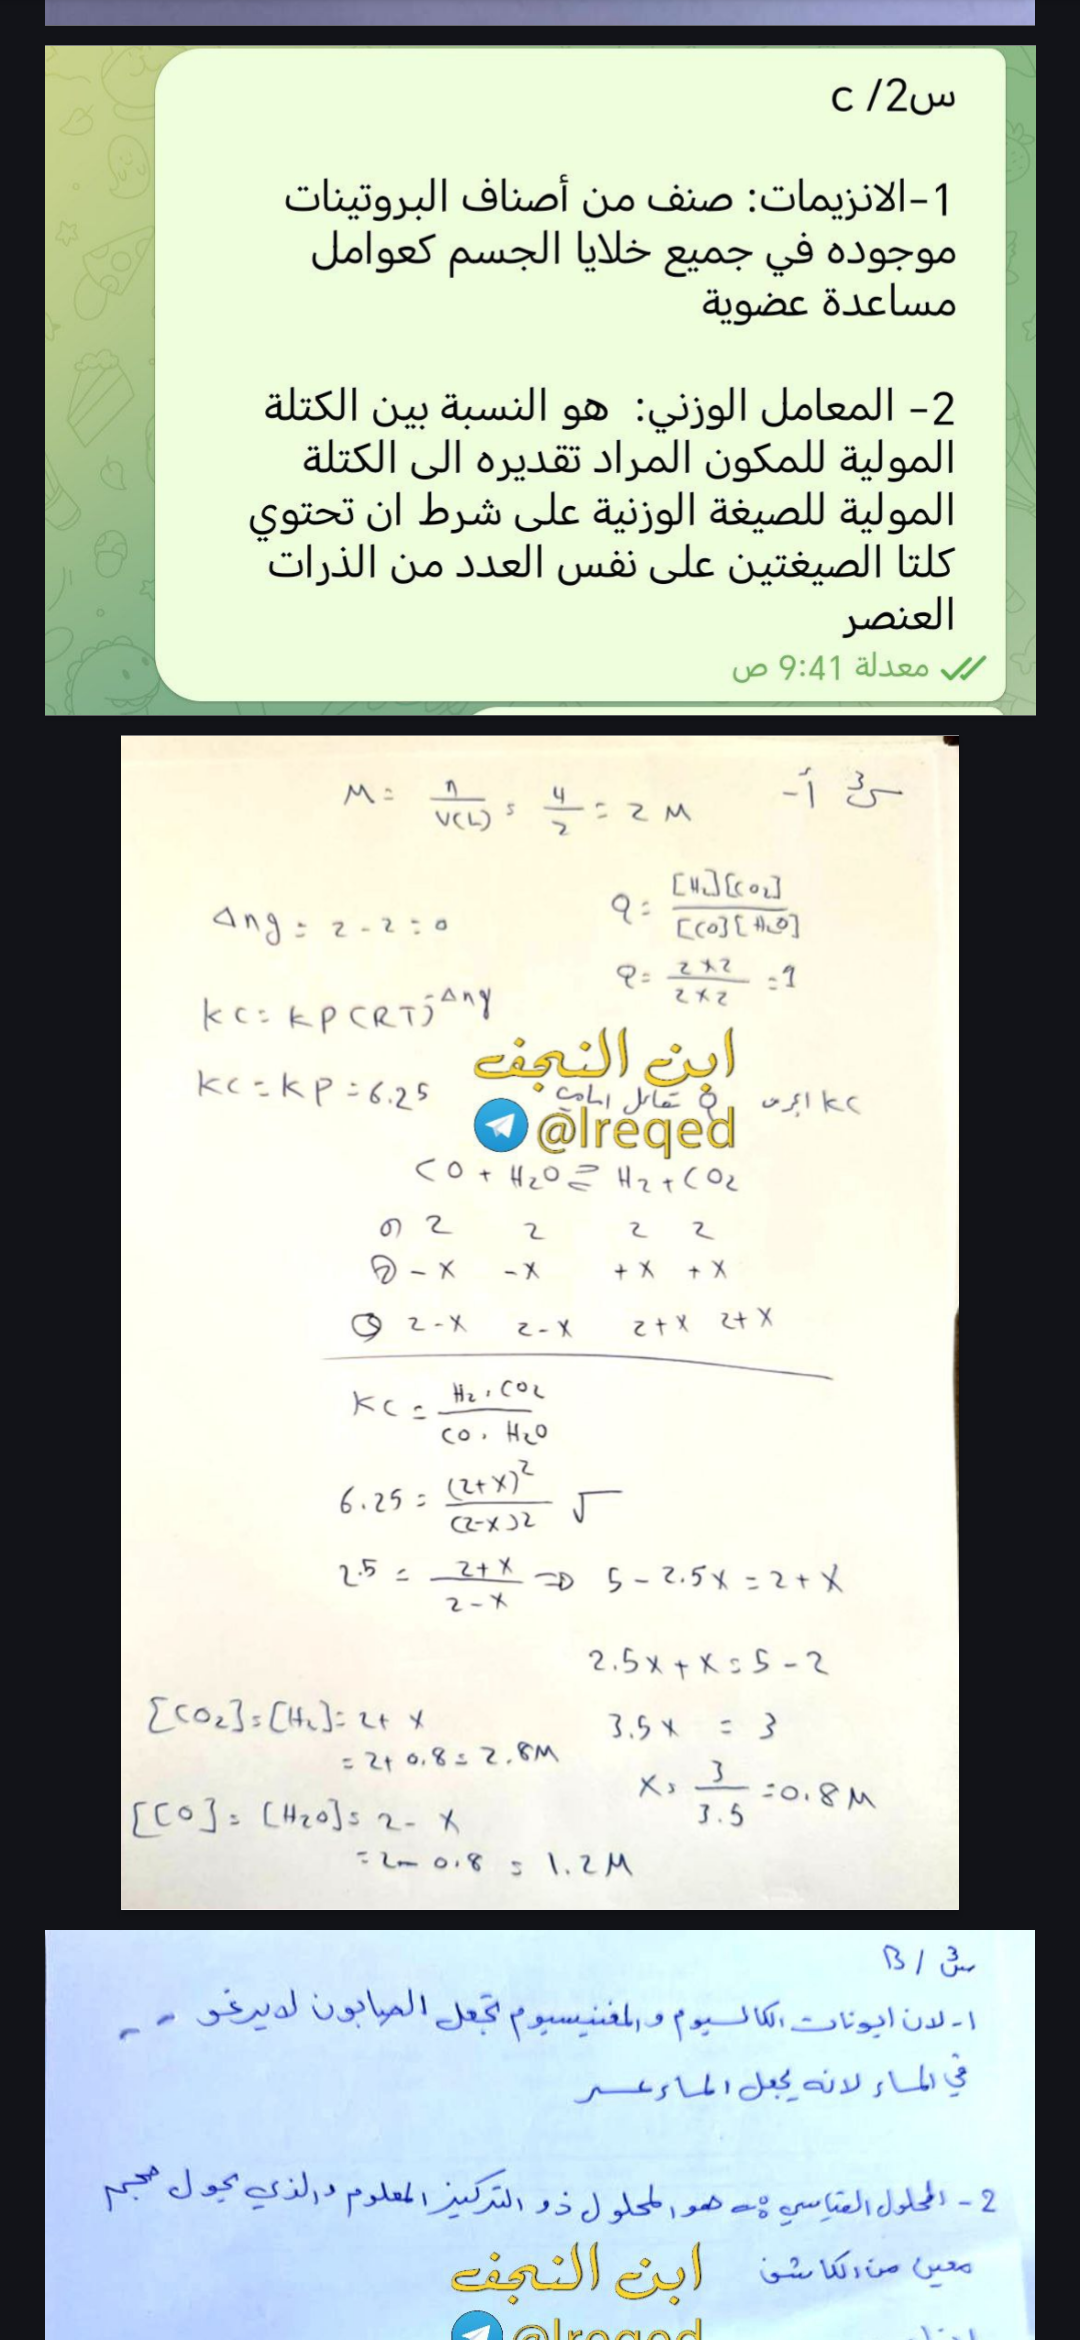 س2/ c
1-الانزيمات: صنف من أصناف البروتينات
موجوده في جميع خلايا الجسم كعوامل
مساعدة عضوية
2- المعامل الوزني: هو النسبة بين الكتلة
المولية للمكون المراد تقديره الى الكتلة
المولية للصيغة الوزنية على شرط ان تحتوي
كلتا الصيغتين على نفس العدد من الذرات
العنصر
معدلة 9:41 ص
س3 أ-
M = n/V(L) = 4/2 = 2 M
Q = [H2][CO2]/[CO][H2O]
Δng = 2 - 2 = 0
Q = 2×2/2×2 = 1
kc = kP(RT)^-Δng
kc = kP = 6.25
ابن النجف
kc اكبر من Q تفاعل امامي
@lreqed
CO + H2O ⇌ H2 + CO2
① 2 2 2 2
② -x -x +x +x
③ 2-x 2-x 2+x 2+x
kc = H2 . CO2/CO . H2O
6.25 = (2+x)²/(2-x)2 √
2.5 = 2+x/2-x ⇒ 5 - 2.5x = 2 + x
2.5x + x = 5 - 2
3.5x = 3
x = 3/3.5 = 0.8 M
[CO2] = [H2] = 2+ x
= 2+ 0.8 = 2.8M
[CO] = [H2O] = 2- x
= 2- 0.8 = 1.2M
س3 / B
1- لان ايونات الكالسيوم والمغنيسيوم تجعل الصابون لا يرغو
في الماء لانه يجعل الماء عسر
2- المحلول القياسي :- هو المحلول ذو التركيز المعلوم والذي يحول حجم
معين من الكاشف
ابن النجف
@lreqed